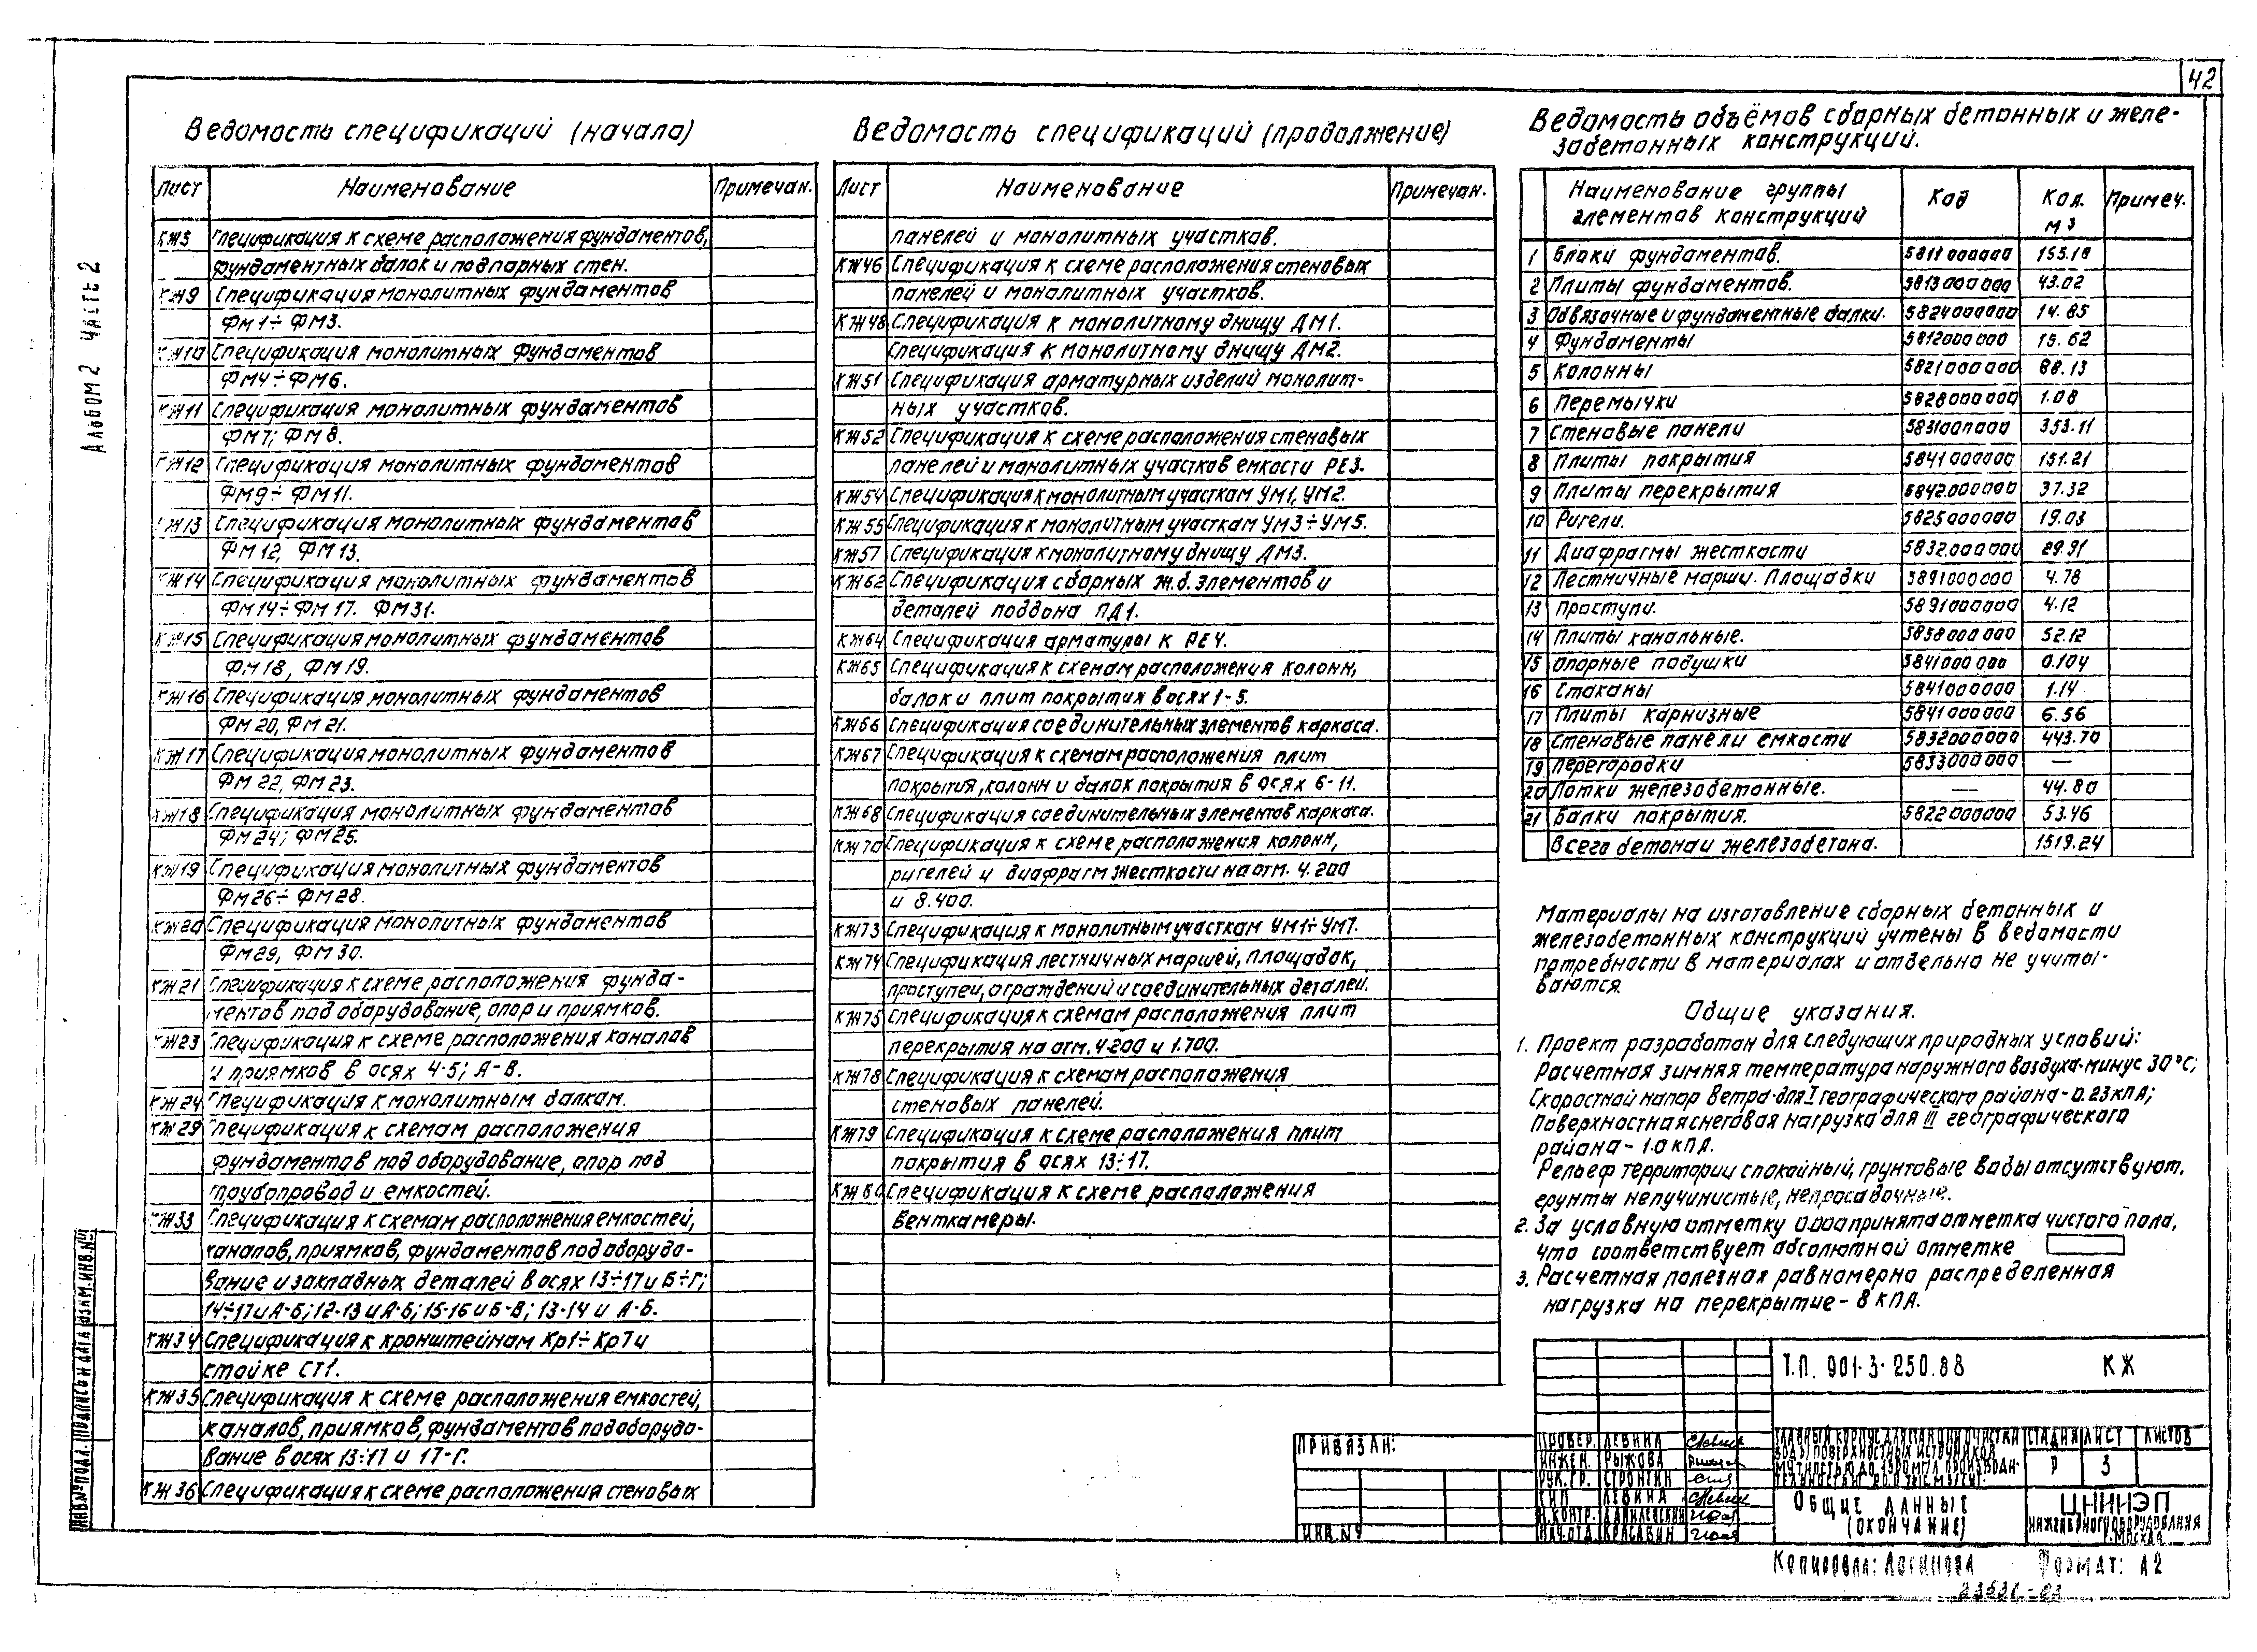 42
Альбом 2 часть 2
Ведомость спецификаций (начало)
Лист Наименование Примечан.
КЖ5 Спецификация к схеме расположения фундаментов,
фундаментных балок и подпорных стен.
КЖ9 Спецификация монолитных фундаментов
ФМ1÷ФМ3.
КЖ10 Спецификация монолитных фундаментов
ФМ4÷ФМ6.
КЖ11 Спецификация монолитных фундаментов
ФМ7; ФМ8.
КЖ12 Спецификация монолитных фундаментов
ФМ9÷ФМ11.
КЖ13 Спецификация монолитных фундаментов
ФМ12, ФМ13.
КЖ14 Спецификация монолитных фундаментов
ФМ14÷ФМ17. ФМ31.
КЖ15 Спецификация монолитных фундаментов
ФМ18, ФМ19.
КЖ16 Спецификация монолитных фундаментов
ФМ20, ФМ21.
КЖ17 Спецификация монолитных фундаментов
ФМ22, ФМ23.
КЖ18 Спецификация монолитных фундаментов
ФМ24; ФМ25.
КЖ19 Спецификация монолитных фундаментов
ФМ26÷ФМ28.
КЖ20 Спецификация монолитных фундаментов
ФМ29, ФМ30.
КЖ21 Спецификация к схеме расположения фунда-
ментов под оборудование, опор и приямков.
КЖ23 Спецификация к схеме расположения каналов
и приямков в осях 4-5; А-В.
КЖ24 Спецификация к монолитным балкам.
КЖ29 Спецификация к схемам расположения
фундаментов под оборудование, опор под
трубопровод и емкостей.
КЖ33 Спецификация к схемам расположения емкостей,
каналов, приямков, фундаментов под оборудо-
вание и закладных деталей в осях 13÷17 и Б÷Г;
14÷17 и А-Б; 12-13 и А-Б; 15-16 и Б-В; 13-14 и А-Б.
КЖ34 Спецификация к кронштейнам Кр1÷Кр7 и
стойке СТ1.
КЖ35 Спецификация к схеме расположения емкостей,
каналов, приямков, фундаментов под оборудо-
вание в осях 13÷17 и 17-Г.
КЖ36 Спецификация к схеме расположения стеновых
Ведомость спецификаций (продолжение)
Лист Наименование Примечан.
панелей и монолитных участков.
КЖ46 Спецификация к схеме расположения стеновых
панелей и монолитных участков.
КЖ48 Спецификация к монолитному днищу ДМ1.
Спецификация к монолитному днищу ДМ2.
КЖ51 Спецификация арматурных изделий монолит-
ных участков.
КЖ52 Спецификация к схеме расположения стеновых
панелей и монолитных участков емкости РЕ3.
КЖ54 Спецификация к монолитным участкам УМ1, УМ2.
КЖ55 Спецификация к монолитным участкам УМ3÷УМ5.
КЖ57 Спецификация к монолитному днищу ДМ3.
КЖ62 Спецификация сборных ж.б. элементов и
деталей поддона ПД1.
КЖ64 Спецификация арматуры к РЕ4.
КЖ65 Спецификация к схемам расположения колонн,
балок и плит покрытия в осях 1-5.
КЖ66 Спецификация соединительных элементов каркаса.
КЖ67 Спецификация к схемам расположения плит
покрытия, колонн и балок покрытия в осях 6-11.
КЖ68 Спецификация соединительных элементов каркаса.
КЖ70 Спецификация к схеме расположения колонн,
ригелей и диафрагм жесткости на отм. 4.200
и 8.400.
КЖ73 Спецификация к монолитным участкам УМ1÷УМ7.
КЖ74 Спецификация лестничных маршей, площадок,
проступей, ограждений и соединительных деталей.
КЖ75 Спецификация к схемам расположения плит
перекрытия на отм. 4.200 и 1.700.
КЖ78 Спецификация к схемам расположения
стеновых панелей.
КЖ79 Спецификация к схеме расположения плит
покрытия в осях 13÷17.
КЖ80 Спецификация к схеме расположения
венткамеры.
Ведомость объёмов сборных бетонных и желе-
зобетонных конструкций.
Наименование группы элементов конструкций Код Кол. м3 Примеч.
1 Блоки фундаментов. 5811000000 155.18
2 Плиты фундаментов. 5813000000 43.02
3 Обвязочные и фундаментные балки. 5824000000 14.85
4 Фундаменты 5812000000 15.62
5 Колонны 5821000000 88.13
6 Перемычки 5828000000 1.08
7 Стеновые панели 5831000000 353.11
8 Плиты покрытия 5841000000 151.21
9 Плиты перекрытия 5842000000 37.32
10 Ригели. 5825000000 19.03
11 Диафрагмы жесткости 5832000000 29.91
12 Лестничные марши. Площадки 5891000000 4.78
13 Проступи. 5891000000 4.12
14 Плиты канальные. 5858000000 52.12
15 Опорные подушки 5841000000 0.104
16 Стаканы 5841000000 1.14
17 Плиты карнизные 5841000000 6.56
18 Стеновые панели емкости 5832000000 443.70
19 Перегородки 5833000000 —
20 Лотки железобетонные. — 44.80
21 Балки покрытия. 5822000000 53.46
Всего бетона и железобетона. 1519.24
Материалы на изготовление сборных бетонных и
железобетонных конструкций учтены в ведомости
потребности в материалах и отдельно не учиты-
ваются.
Общие указания.
1. Проект разработан для следующих природных условий:
Расчетная зимняя температура наружного воздуха-минус 30°С;
Скоростной напор ветра-для I географического района-0.23кПА;
Поверхностная снеговая нагрузка для III географического
района-1.0кПА.
Рельеф территории спокойный, грунтовые воды отсутствуют,
грунты непучинистые, непросадочные.
2. За условную отметку 0.000 принята отметка чистого пола,
что соответствует абсолютной отметке
3. Расчетная полезная равномерно распределенная
нагрузка на перекрытие-8кПА.
Т.П. 901-3-250.88 КЖ
Привязан:
Инв.№
Провер. Левина
Инжен. Рыжова
Рук.гр. Стронгин
ГИП Левина
Н.контр. Данилевский
Нач.отд. Красавин
Главный корпус для станции очистки
воды поверхностных источников
мутностью до
Стадия Лист Листов
Р 3
Общие данные
(окончание)
ЦНИИЭП
инженерного оборудования
г.Москва
Инв.№ подл. Подпись и дата Взам.инв.№
Копировал: Логинова Формат: А2